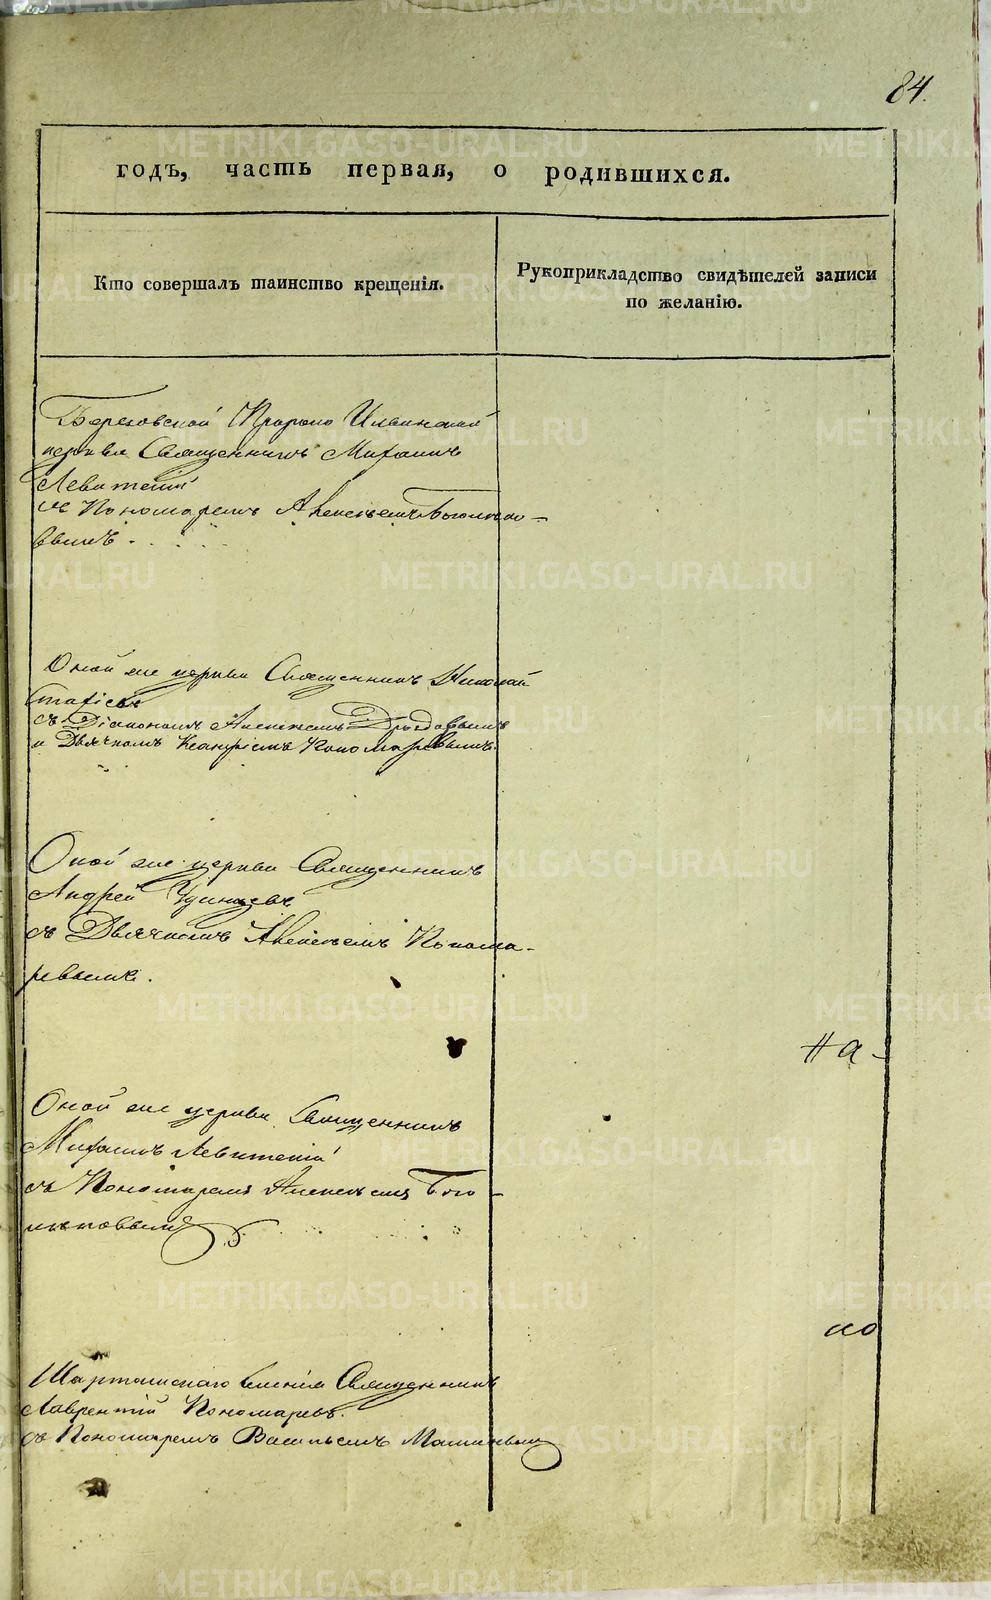 84.
годъ, часть первая, о родившихся.
Кто совершалъ таинство крещенія.
Рукоприкладство свидѣтелей записи
по желанію.
Березовской Пророко Ильинской
церкви Священникъ Михаилъ
Левитскій
съ Пономаремъ Алексѣемъ Боголѣпо-
вымъ.
Оной же церкви Священникъ Николай
съ Діакономъ Алексѣемъ Дроздовымъ
и Дьячкомъ Пономаревымъ.
Оной же церкви Священникъ
Андрей Удинцевъ
съ Дьячкомъ Алексѣемъ Понома-
ревымъ.
На-
Оной же церкви Священникъ
Михаилъ Левитскій
съ Пономаремъ Алексѣемъ Бого-
лѣповымъ
по
Шарташскаго селенія Священникъ
Лаврентій Пономаревъ.
съ Пономаремъ Васильемъ
METRIKI.GASO-URAL.RU